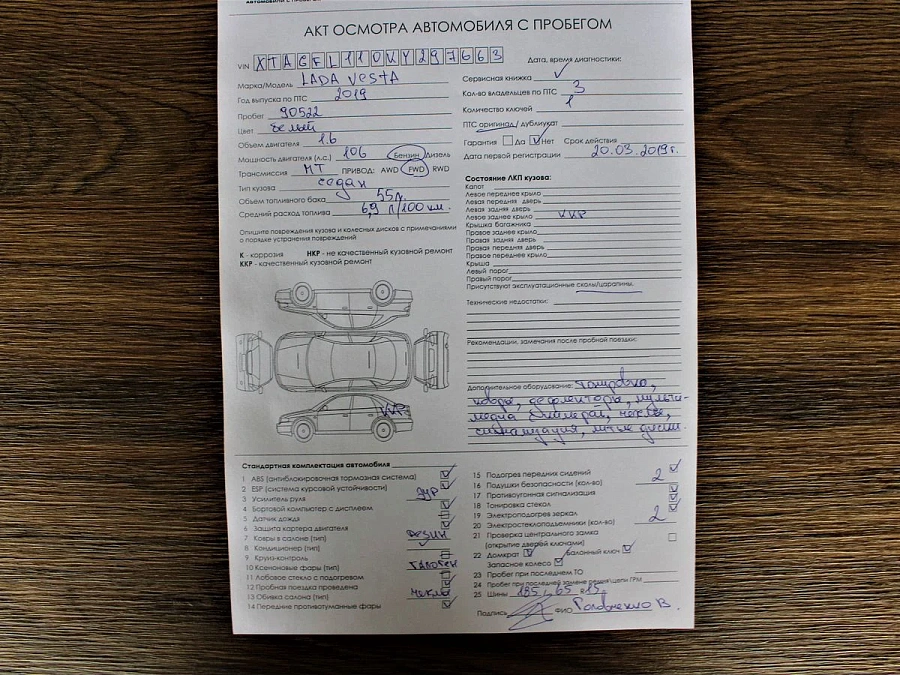 АКТ ОСМОТРА АВТОМОБИЛЯ С ПРОБЕГОМ
VIN XTAGFL110KY297663
Марка/Модель LADA VESTA
Год выпуска по ПТС 2019
Пробег 90522
Цвет белый
Объем двигателя 1.6
Мощность двигателя (л.с.) 106 Бензин/Дизель
Трансмиссия МТ ПРИВОД: AWD FWD RWD
Тип кузова седан
Объем топливного бака 55л
Средний расход топлива 6,9 л/100 км.
Опишите повреждения кузова и колесных дисков с примечаниями
о порядке устранения повреждений
К - коррозия НКР - не качественный кузовной ремонт
ККР - качественный кузовной ремонт
ККР
Дата, время диагностики:
Сервисная книжка
Кол-во владельцев по ПТС 3
Количество ключей 1
ПТС оригинал/ дубликат
Гарантия Да Нет Срок действия
Дата первой регистрации 20.03.2019г.
Состояние ЛКП кузова:
Капот
Левое переднее крыло
Левая передняя дверь
Левая задняя дверь
Левое заднее крыло ККР
Крышка багажника
Правое заднее крыло
Правая задняя дверь
Правая передняя дверь
Правое переднее крыло
Крыша
Левый порог
Правый порог
Присутствуют эксплуатационные сколы/царапины.
Технические недостатки:
Рекомендации, замечания после пробной поездки:
Дополнительное оборудование: тонировка,
ковры, дефлекторы, мульти-
медиа, чехлы,
сигнализация, литые диски.
Стандартная комплектация автомобиля
1 ABS (антиблокировочная тормозная система)
2 ESP (система курсовой устойчивости)
3 Усилитель руля ЭУР
4 Бортовой компьютер с дисплеем
5 Датчик дождя
6 Защита картера двигателя
7 Ковры в салоне (тип) резин
8 Кондиционер (тип)
9 Круиз-контроль
10 Ксеноновые фары (тип) галоген
11 Лобовое стекло с подогревом
12 Пробная поездка проведена
13 Обивка салона (тип) чехлы
14 Передние противотуманные фары
15 Подогрев передних сидений
16 Подушки безопасности (кол-во) 2
17 Противоугонная сигнализация
18 Тонировка стекол
19 Электроподогрев зеркал
20 Электростеклоподъемники (кол-во) 2
21 Проверка центрального замка
(открытие дверей ключами)
22 Домкрат Балонный ключ
Запасное колесо
23 Пробег при последнем ТО
24 Пробег при последней замене ремня/цепи ГРМ
25 Шины 185 65 R15
Подпись ФИО Головченко В.